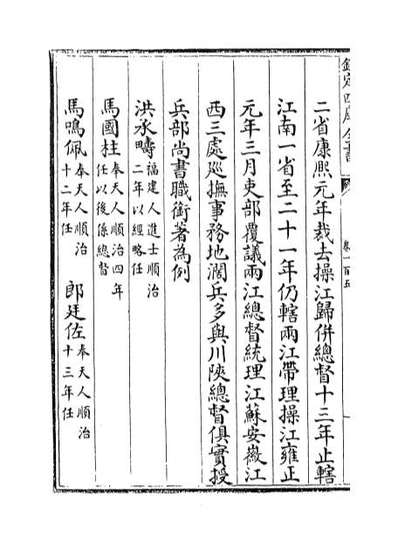 欽定四庫全書
卷一百五
二省康熙元年裁去操江歸併總督十三年止轄
江南一省至二十一年仍轄兩江帶理操江雍正
元年三月吏部覆議兩江總督統理江蘇安徽江
西三處廵撫事務地濶兵多與川陜總督俱實授
兵部尚書職銜著為例
洪承疇福建人進士順治
二年以經略任
馬國柱奉天人順治四年
任以後係總督
馬鳴佩奉天人順治
十二年任
郎廷佐奉天人順治
十三年任